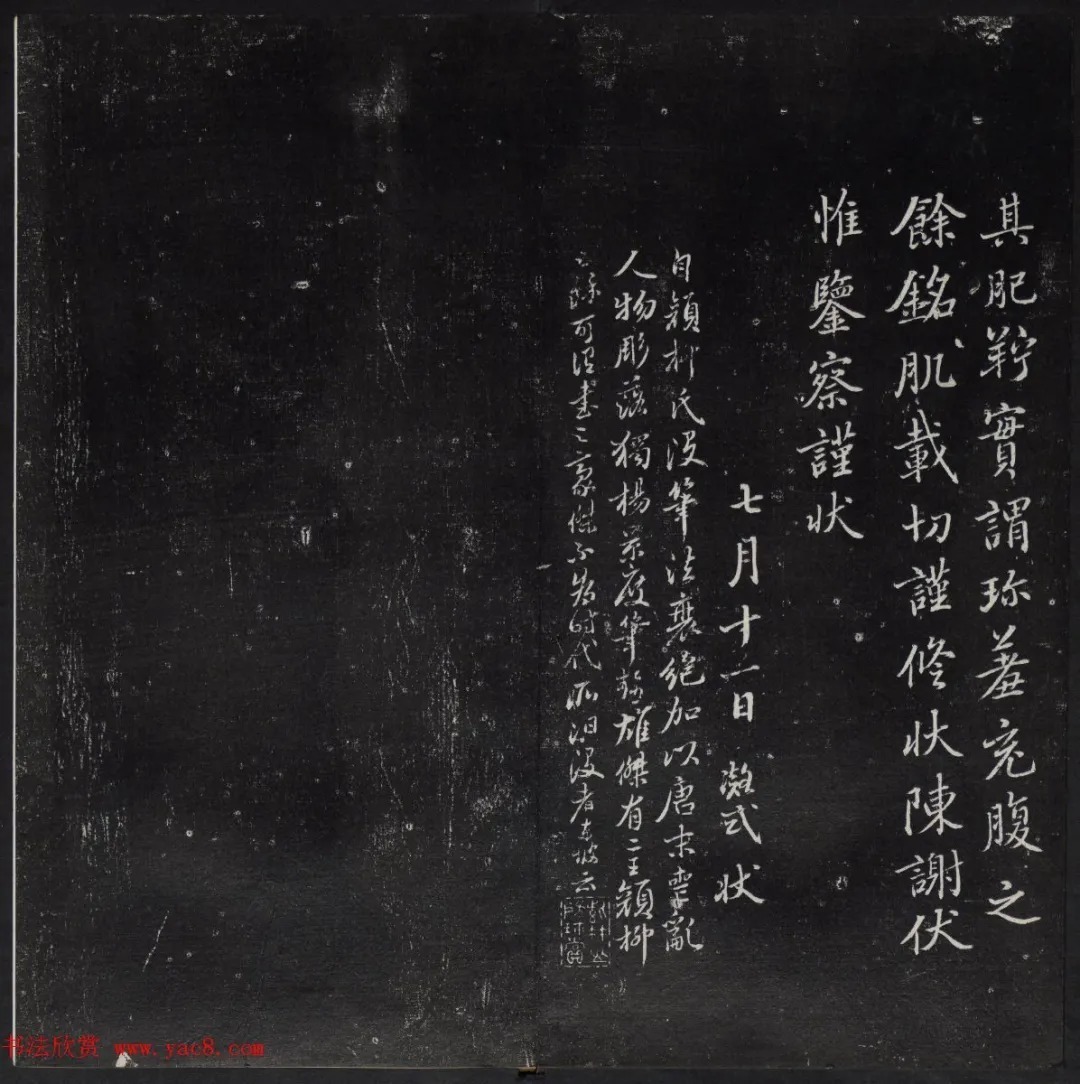 其肥羜實謂珎羞充腹之
餘銘肌載切謹修状陳謝伏
惟鑒察謹状
七月十一日 凝式状
自顔柳氏沒筆法衰絶加以唐末喪亂
人物彫落獨楊景度筆跡雄傑有二王顔柳
之餘可謂書之豪傑不為時代所汨沒者東坡云
书法欣赏 www.yac8.com